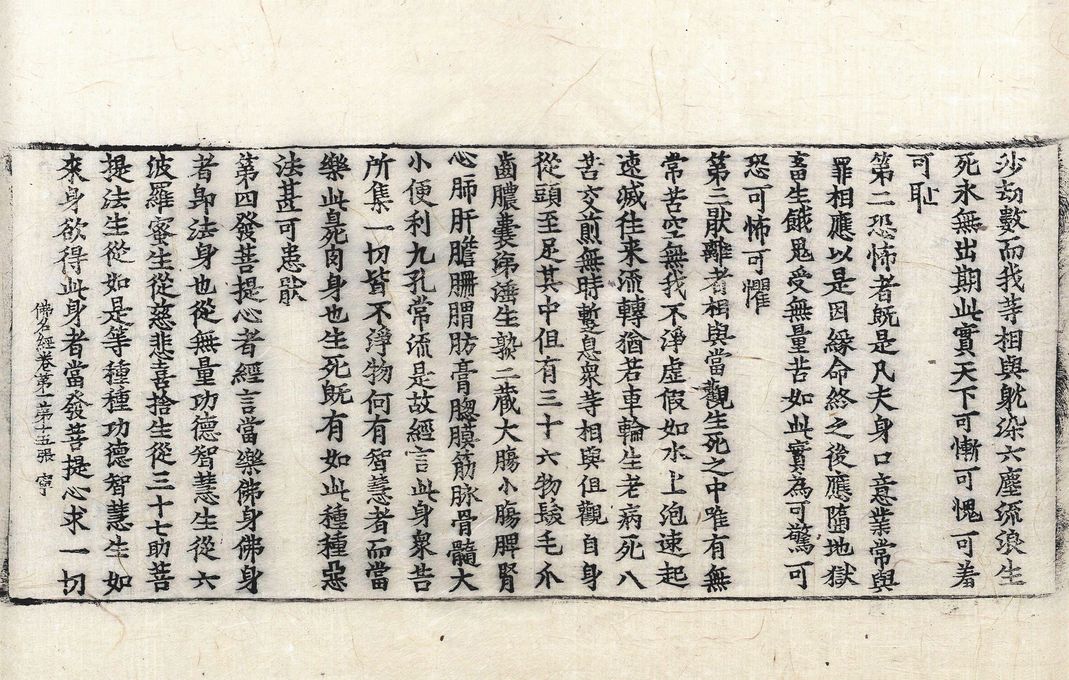 沙劫數而我等相與躭染六塵流浪生
死永無出期此實天下可慚可愧可羞
可耻
第二恐怖者旣是凡夫身口意業常與
罪相應以是因緣命終之後應墮地獄
畜生餓鬼受無量苦如此實為可驚可
恐可怖可懼
第三猒離者相與當觀生死之中唯有無
常苦空無我不淨虛假如水上泡速起
速滅往来流轉猶若車輪生老病死八
苦交煎無時蹔息衆等相與但觀自身
從頭至足其中但有三十六物髮毛爪
齒膿囊涕濟生熟二蔵大膓小膓脾腎
心肺肝膽䏬腪肪膏𦛁膜筋脉骨髓大
小便利九孔常流是故經言此身衆苦
所集一切皆不淨物何有智慧者而當
樂此臭死肉身也生死旣有如此種種惡
法甚可患猒
第四發菩提心者經言當樂佛身佛身
者即法身也從無量功德智慧生從六
波羅蜜生從慈悲喜捨生從三十七助菩
提法生從如是等種種功德智慧生如
來身欲得此身者當發菩提心求一切
佛名經卷第一第十五張 寧